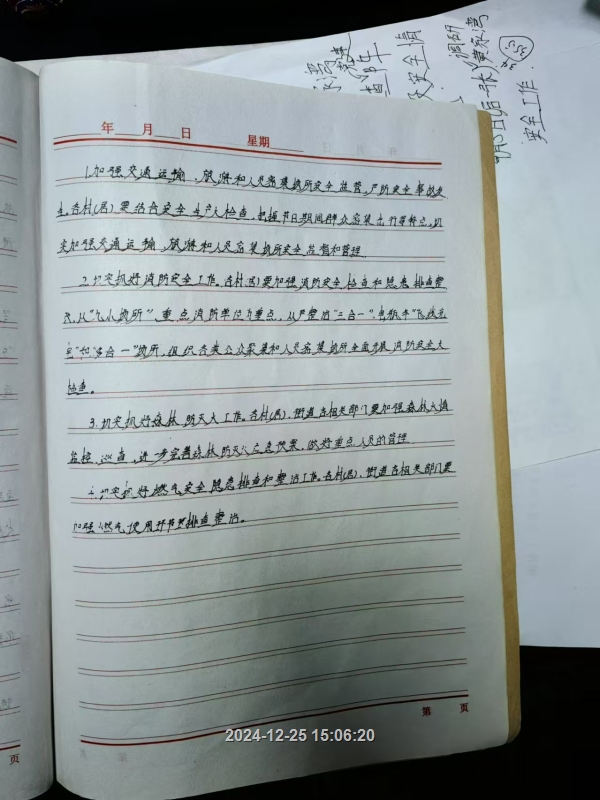 年 月 日 星期
1.加强交通运输、旅游和人员密集场所安全监管,严防安全事故发
生。各村(居)要结合安全生产大检查,把握节日期间群众密集出行等特点,切
实加强交通运输、旅游和人员密集场所安全监督和管理
2.切实抓好消防安全工作。各村(居)要加强消防安全检查和隐患排查整
改,从"九小场所"、重点消防单位为重点,从严整治"三合一"、电动车"飞线充
电"和"多合一"场所,组织各类公众聚集和人员密集场所全面开展消防安全大
检查。
3.切实抓好森林防灭火工作。各村(居)、街道各相关部门要加强森林火情
监控、巡查,进一步完善森林防灭火应急预案,做好重点人员的管理
4.切实抓好燃气安全隐患排查和整治工作。各村(居)、街道各相关部门要
加强燃气使用环节类排查整治。
第 页
页
安全工作.
调研
2024-12-25 15:06:20